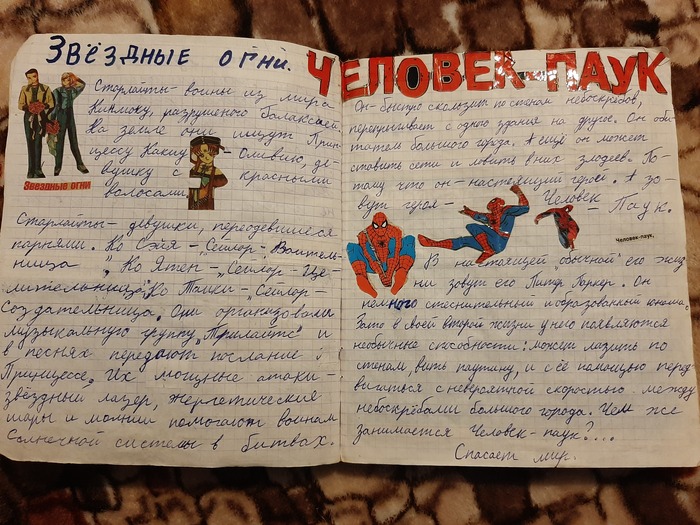 ЗВЁЗДНЫЕ ОГНИ.
Старлайты - воины из мира
Кинмоку, разрушеного Галаксией.
На земле они ищут Прин-
цессу Какию Оливию, де-
вушку с красными
волосами.
Звездные огни
Старлайты - девушки, переодевшиеся
парнями. Ко Сэйя - "Сейлор-Воитель-
ница", Ко Ятен - "Сейлор-Це-
лительница", Ко Тайки - "Сейлор-
Создательница. Они организовали
музыкальную группу "Трилайтс" и
в песнях передают послание
Принцессе. Их мощные атаки -
звёздный лазер, энергетические
шары и молнии помогают воинам
Солнечной системы в битвах.
ЧЕЛОВЕК-ПАУК
Он быстро скользит по стенам небоскрёбов,
перепрыгивает с одного здания на другое. Он оби-
татель большого города. А ещё он может
ставить сети и ловить в них злодеев. По-
тому что он - настоящий герой. А зо-
вут героя - Человек
- Паук.
Человек-паук.
В настоящей "обычной" его жиз
ни зовут его Питер Паркер. Он
немного стеснительный и образованный юноша.
Зато в своей второй жизни у него появляются
необычные способности: может лазить по
стенам, вить паутину, и с её помощью перед-
вигаться с невероятной скоростью между
небоскрёбами большого города. Чем же
занимается Человек-паук?...
Спасает мир.